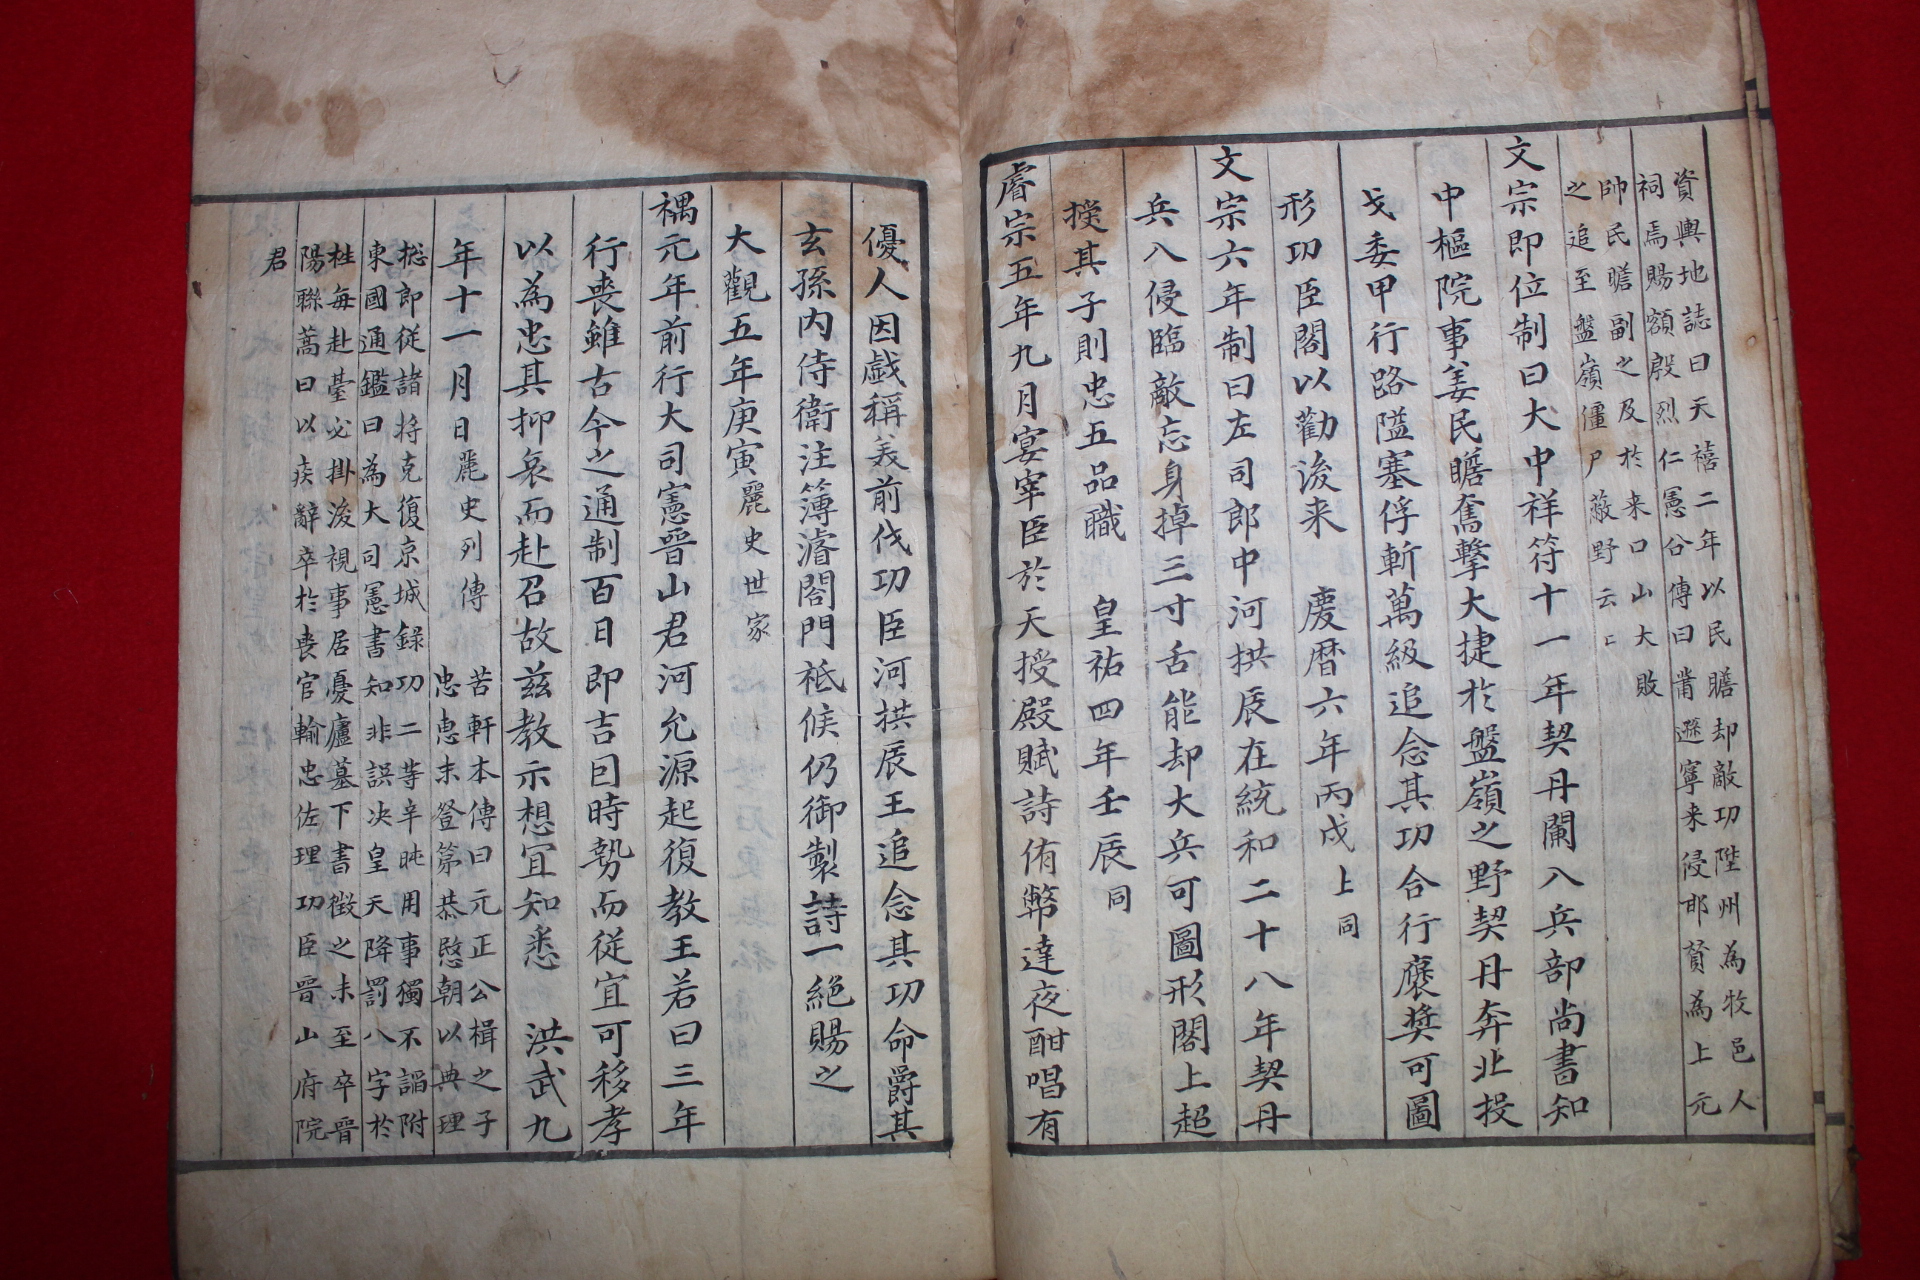 資輿地誌曰天禧二年以民瞻却敵功陞州為牧邑人
祠焉賜額殷烈仁憲公傳曰蕭遜寧来侵邯賛為上元
帥民瞻副之及於来口山大敗
之追至盤嶺僵尸蔽野云〻
文宗即位制曰大中祥符十一年契丹闌入兵部尚書知
中樞院事姜民瞻奮擊大捷於盤嶺之野契丹奔北投
戈委甲行路隘塞俘斬萬級追念其功合行褒奬可圖
形功臣閣以勸後来 慶曆六年丙戌上同
文宗六年制曰左司郎中河拱辰在統和二十八年契丹
兵入侵臨敵忘身掉三寸舌能却大兵可圖形閣上超
授其子則忠五品職 皇祐四年壬辰同
睿宗五年九月宴宰臣於天授殿賦詩侑幣達夜酣唱有
優人因戲稱美前代功臣河拱辰王追念其功命爵其
玄孫内侍衛注簿濬閤門祗候仍御製詩一絶賜之
大觀五年庚寅麗史世家
禑元年前行大司憲晋山君河允源起復教王若曰三年
行喪雖古今之通制百日即吉因時勢而從宜可移孝
以為忠其抑哀而赴召故兹教示想宜知悉 洪武九
年十一月日麗史列傳
苦軒本傳曰元正公楫之子
忠惠末登第恭愍朝以典理
捴郎從諸将克復京城録功二等辛旽用事獨不謟附
東國通鑑曰為大司憲書知非誤决皇天降罰八字於
牲每赴䑓必掛後視事居憂廬墓下書徴之未至卒晋
陽聯蒿曰以疾辭卒於喪官輸忠佐理功臣晋山府院
君